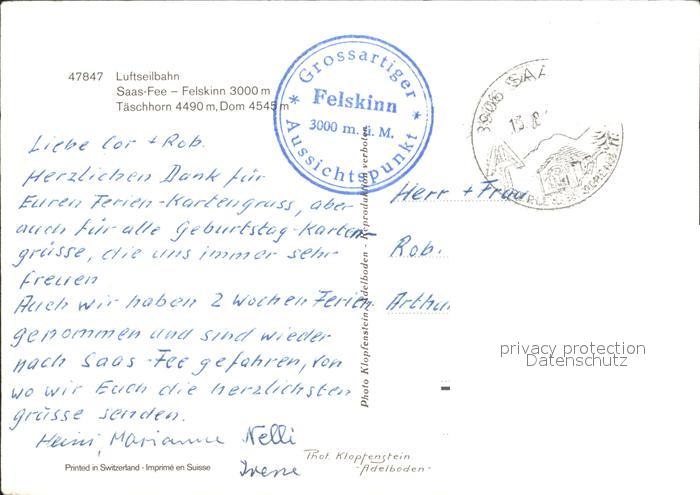 47847 Luftseilbahn
Saas-Fee – Felskinn 3000 m
Täschhorn 4490 m, Dom 4545 m
* Grossartiger *
Felskinn
3000 m. ü. M.
Aussichtspunkt
3906 SAA
Liebe Cor + Rob.
Herzlichen Dank für
Euren Ferien-Kartengruss, aber
auch für alle Geburtstag-Karten-
grüsse, die uns immer sehr
freuen
Auch wir haben 2 Wochen Ferien
genommen und sind wieder
nach Saas-Fee gefahren, von
wo wir Euch die herzlichsten
grüsse senden.
Heini, Marianne Nelli
Irene
Herr + Frau
Rob.
Arthu
Photo Klopfenstein, Adelboden - Reproduktion verboten
privacy protection
Datenschutz
Phot. Klopfenstein
-Adelboden-
Printed in Switzerland - Imprimé en Suisse